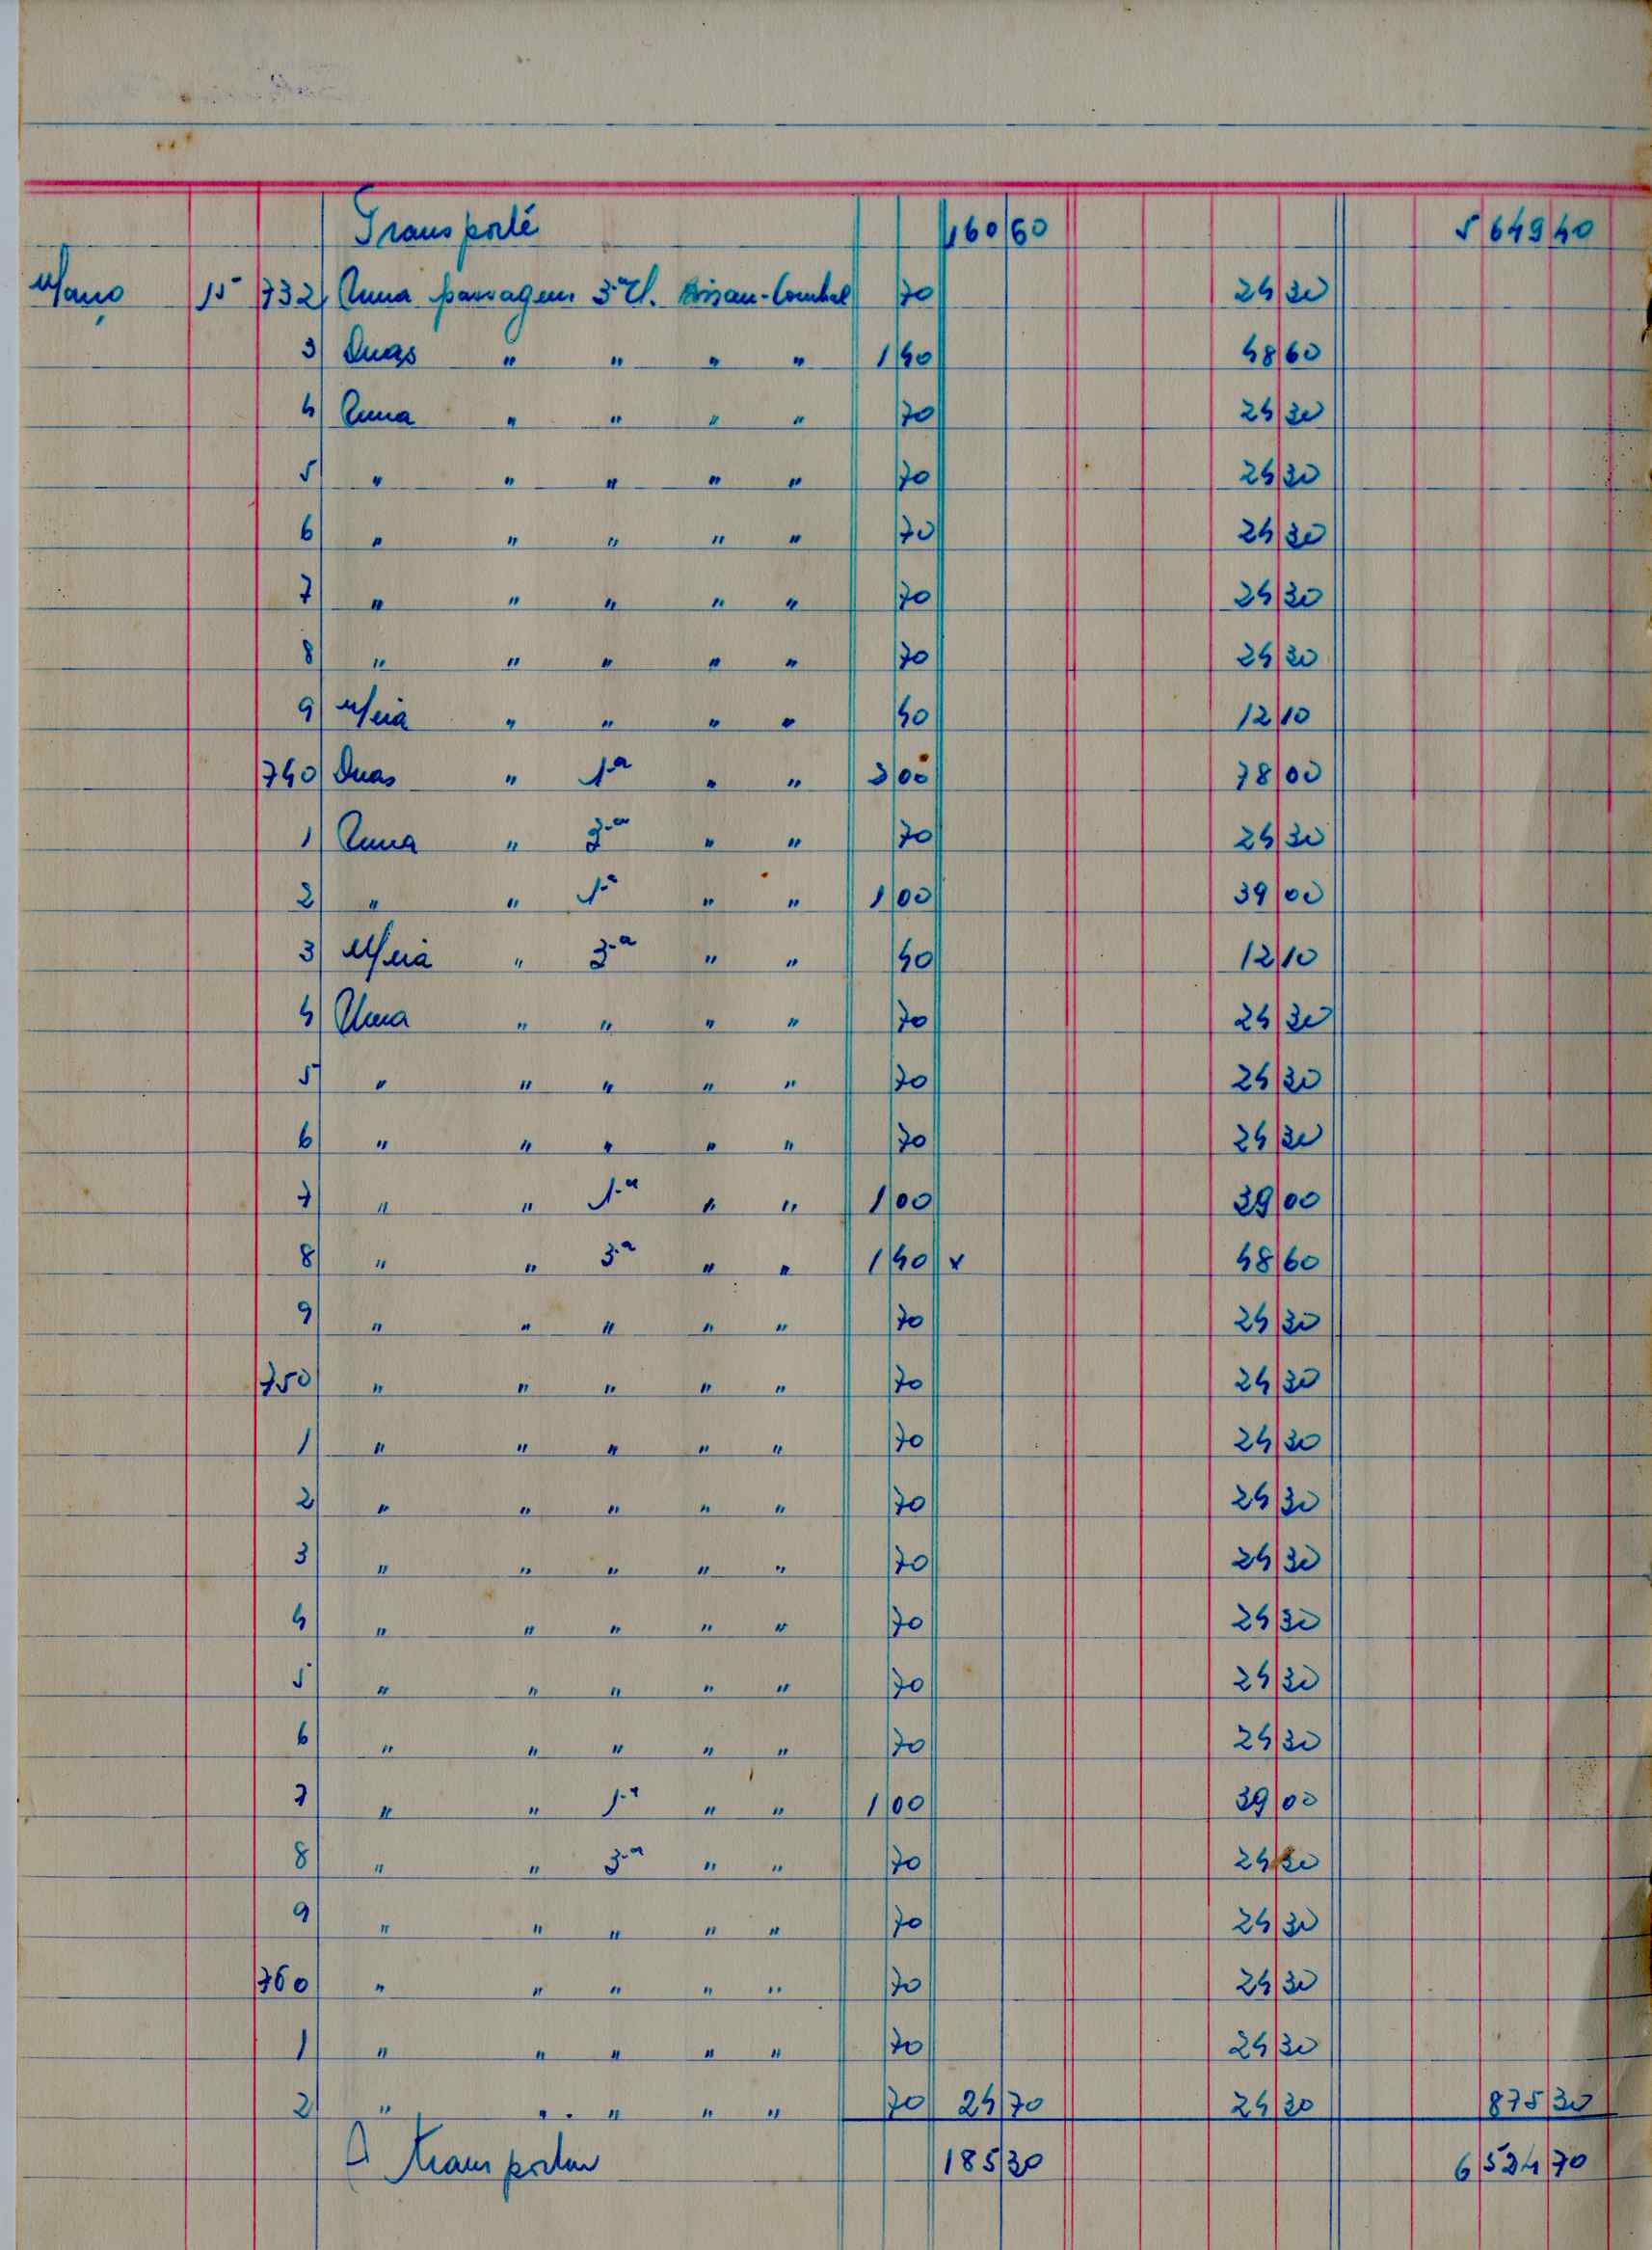 Transporte 160 60 5 649 40
Março 15 732 Uma passagem 3ª Cl. Bissau- 70 24 30
3 Duas " " " " 1 40 48 60
4 Uma " " " " 70 24 30
5 " " " " " 70 24 30
6 " " " " " 70 24 30
7 " " " " " 70 24 30
8 " " " " " 70 24 30
9 Meia " " " " 40 12 10
740 Duas " 1.a " " 3 00 78 00
1 Uma " 3.a " " 70 24 30
2 " " 1.a " " 1 00 39 00
3 Meia " 3.a " " 40 12 10
4 Uma " " " " 70 24 30
5 " " " " " 70 24 30
6 " " " " " 70 24 30
7 " " 1.a " " 1 00 39 00
8 " " 3.a " " 1 40 x 48 60
9 " " " " " 70 24 30
750 " " " " " 70 24 30
1 " " " " " 70 24 30
2 " " " " " 70 24 30
3 " " " " " 70 24 30
4 " " " " " 70 24 30
5 " " " " " 70 24 30
6 " " " " " 70 24 30
7 " " 1.a " " 1 00 39 00
8 " " 3.a " " 70 24 30
9 " " " " " 70 24 30
760 " " " " " 70 24 30
1 " " " " " 70 24 30
2 " " " " " 70 24 70 24 30 875 30
A transportar 185 30 6 524 70